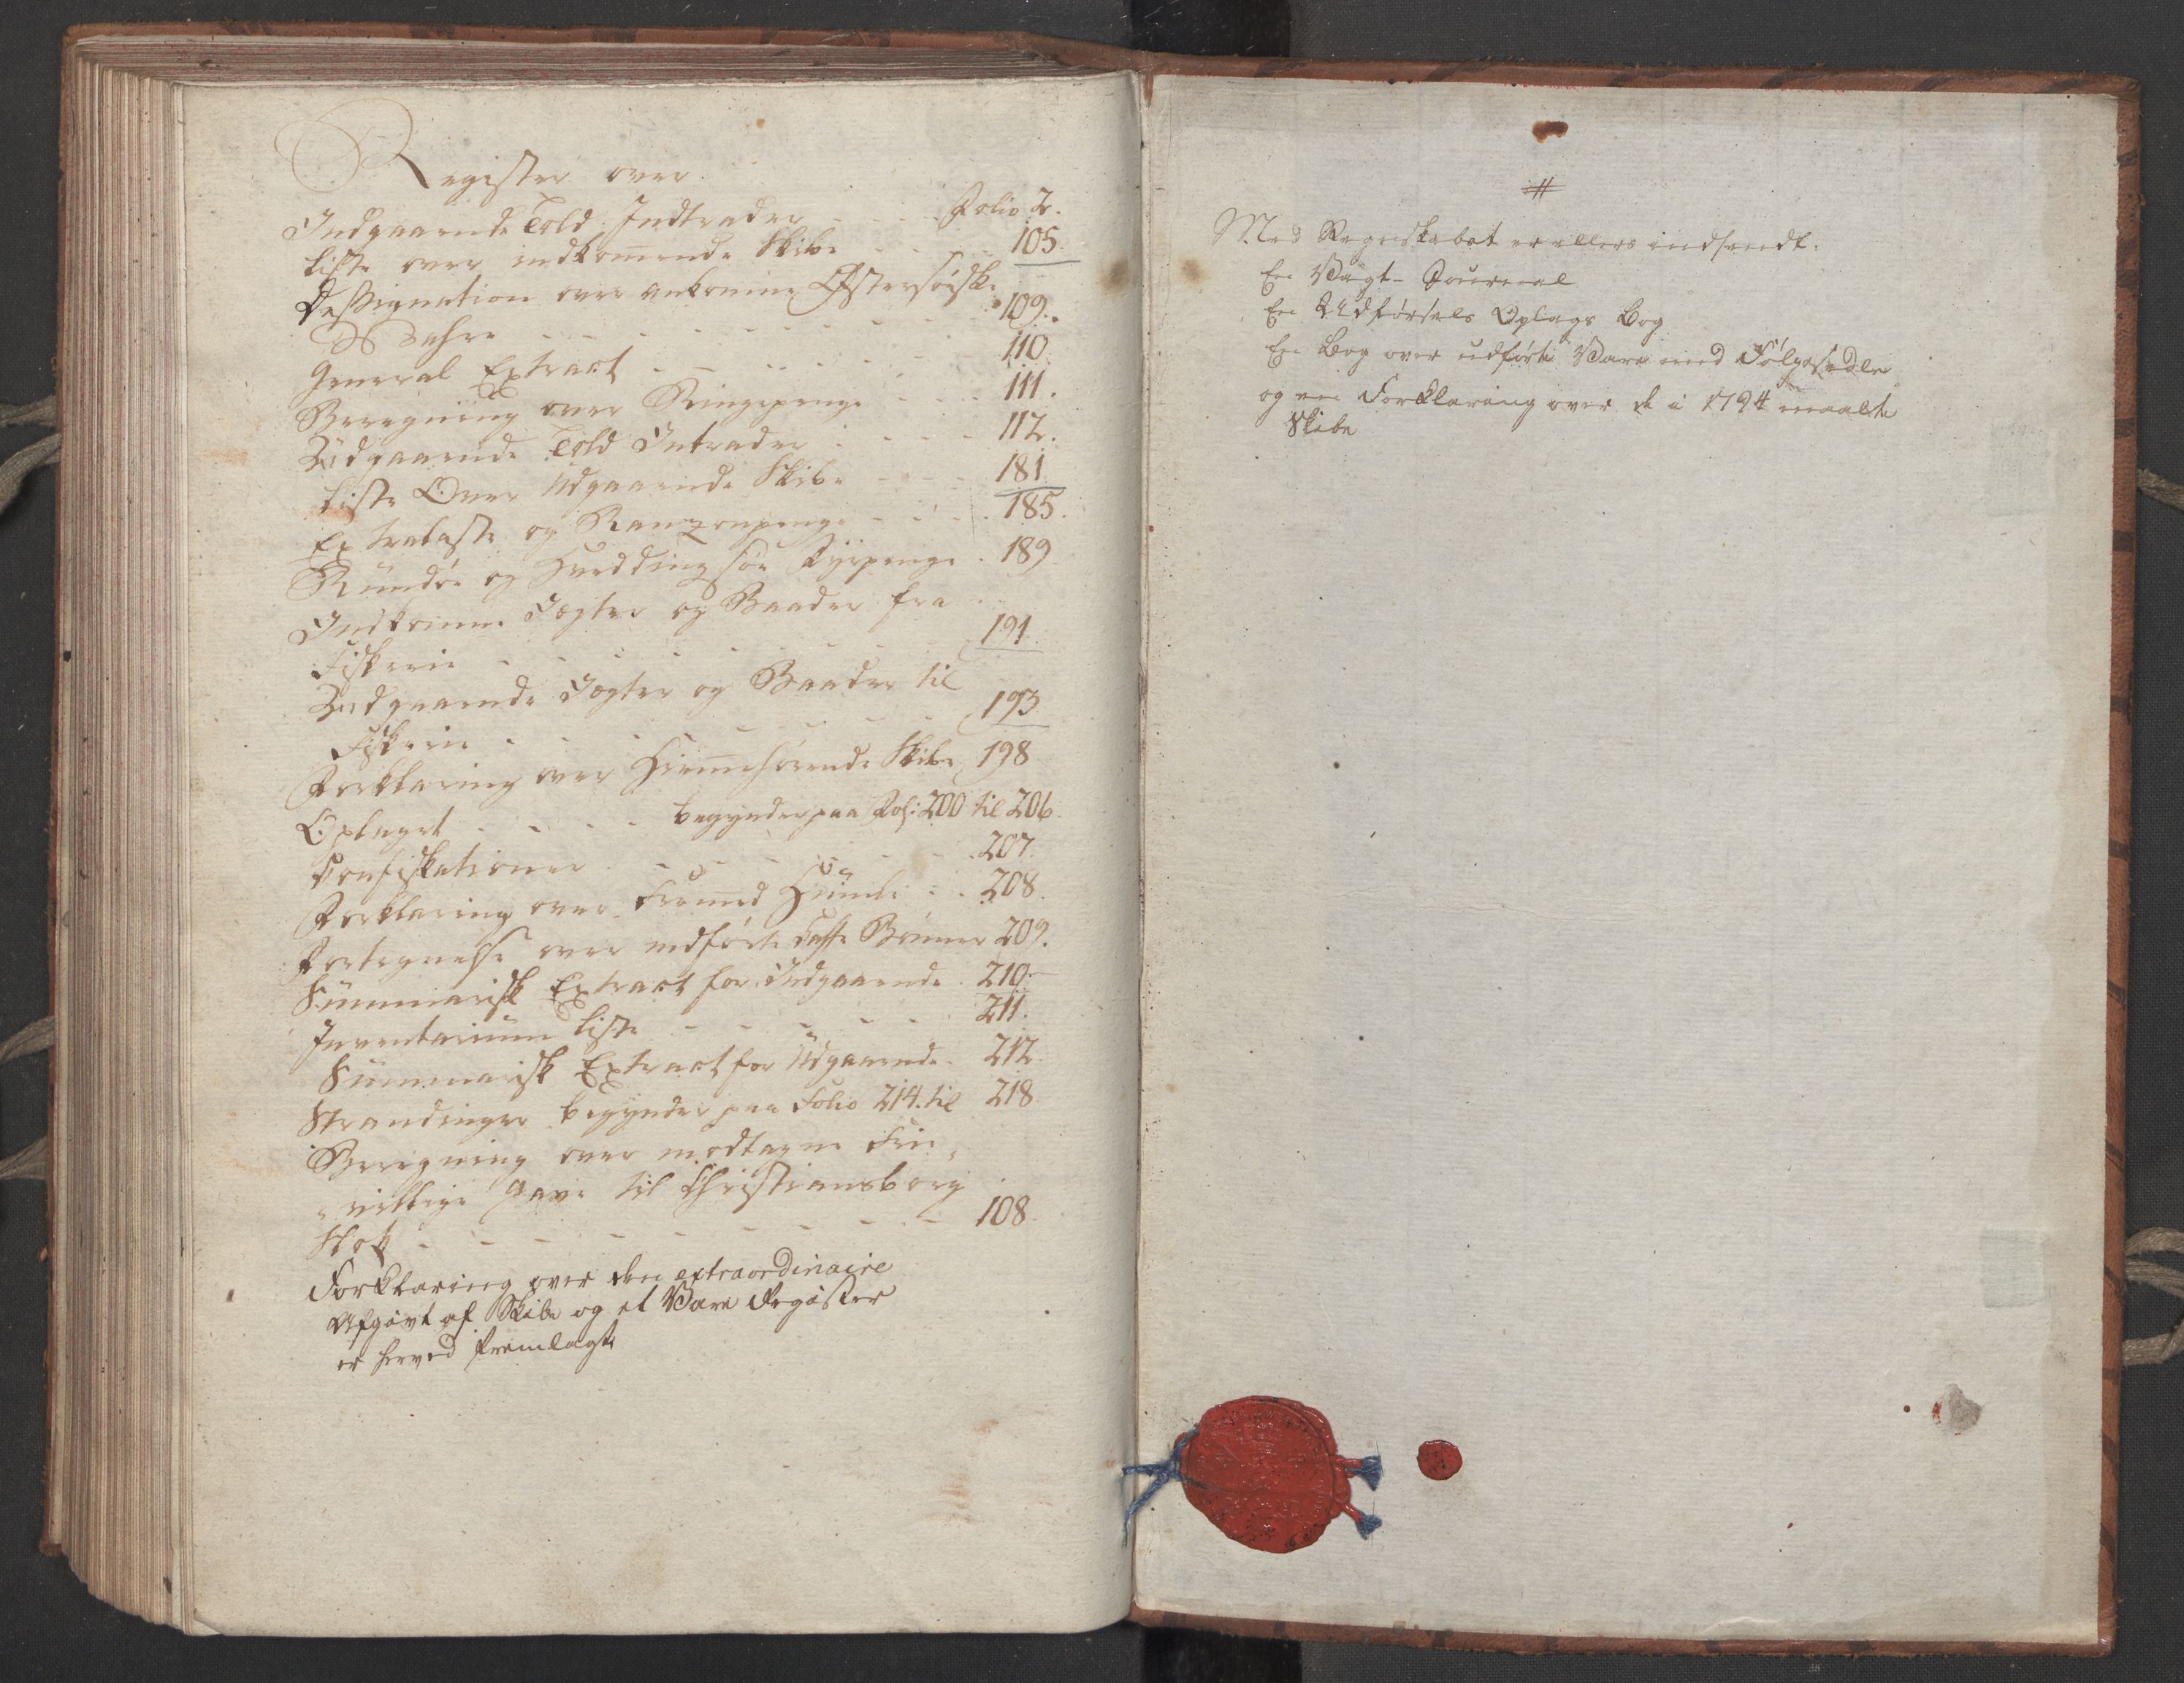 Register over
Indgaaende Told Indtrader - - - Folio 2.
Liste over indkomende Skibe - - - 105.
Dessignation over ankomne Østersöiske
Wahre - - - 109.
General Extract - - - 110.
Beregning over Ringepenge - - - 111.
Udgaaende Told Intrader - - - 112.
Liste Over Udgaaende Skibe - - - 181
Extralaste og Ranzonpenge - - - 185.
Rundöe og Hvedding söe Fyrpenge . 189
Indkomne Jagter og Baader fra
Fiskerie - - - 191.
Udgaaende Jagter og Baader til
Fiskerie - - - 193
Forklaring over Hiemmehörende Skibe 198
Oplaget - - - begynder paa Fol: 200 til 206.
Confiskationer - - - 207.
Forklaring over fremmed Humle - - 208.
Fortegnelse over indförte Caffe Bönner 209.
Summarisk Extract for Indgaaende . 210.
Inventarium Liste - - - 211.
Summarisk Extract for Udgaaende . 212.
Strandinger begynder paa Folio 214. til 218
Beregning over modtagne frie,
villige Gave til Christiansborg
Slot - - - 108.
Forklaring over den extraordinaire
Afgivt af Skibe og et Vare Register
er herved fremlagte
#
Med Regnskabet er ellers indsendt:
En Vagt-Journal
En Udförsels Oplags Bog
En Bog over udförte Vare med Fölgesedle
og en Forklaring over de i 1794 maalte
Skibe